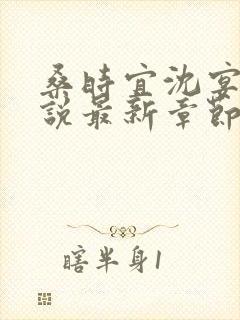 桑時宜沈宴
說最新章節
瞎半身1